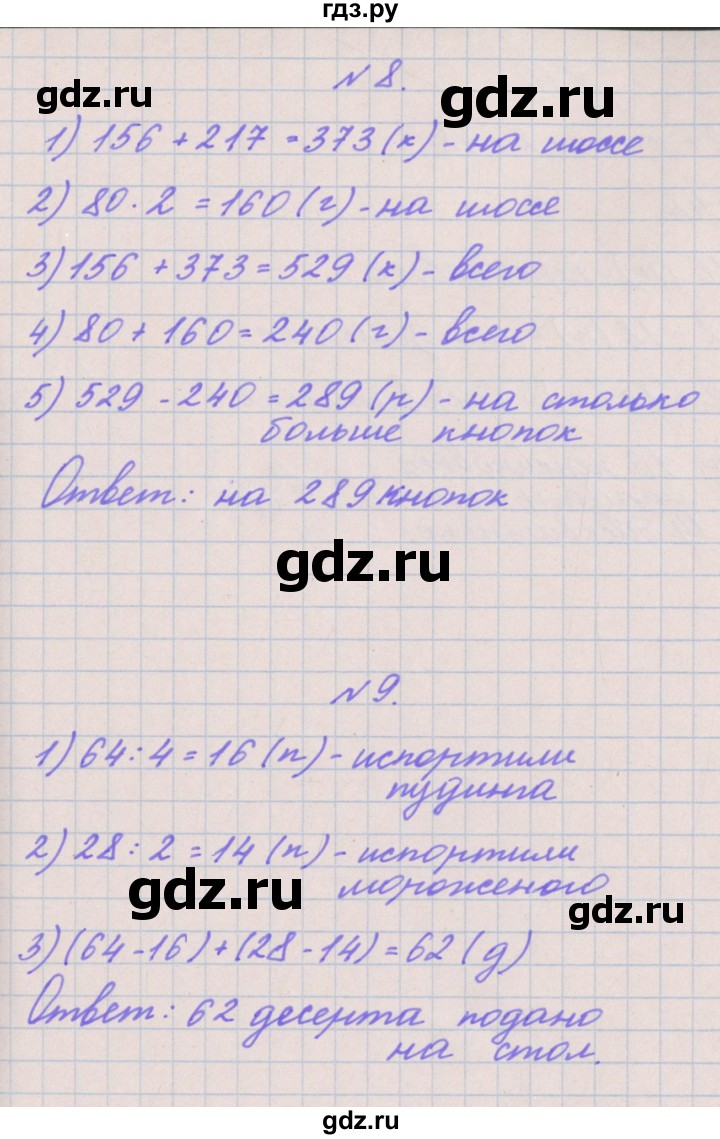 гдз.ру
№ 8.
gdz.ru
gdz.ru
1) 156 + 217 = 373 (к) - на шоссе
2) 80 · 2 = 160 (г) - на шоссе
3) 156 + 373 = 529 (к) - всего
4) 80 + 160 = 240 (г) - всего
5) 529 - 240 = 289 (р) - на столько
больше кнопок
Ответ: на 289 кнопок
gdz.ru
№ 9.
1) 64 : 4 = 16 (п) - испортили
пудинга
2) 28 : 2 = 14 (п) - испортили
мороженого
gdz.ru
gdz.ru
3) (64 - 16) + (28 - 14) = 62 (д)
Ответ: 62 десерта подано
на стол.
gdz.ru